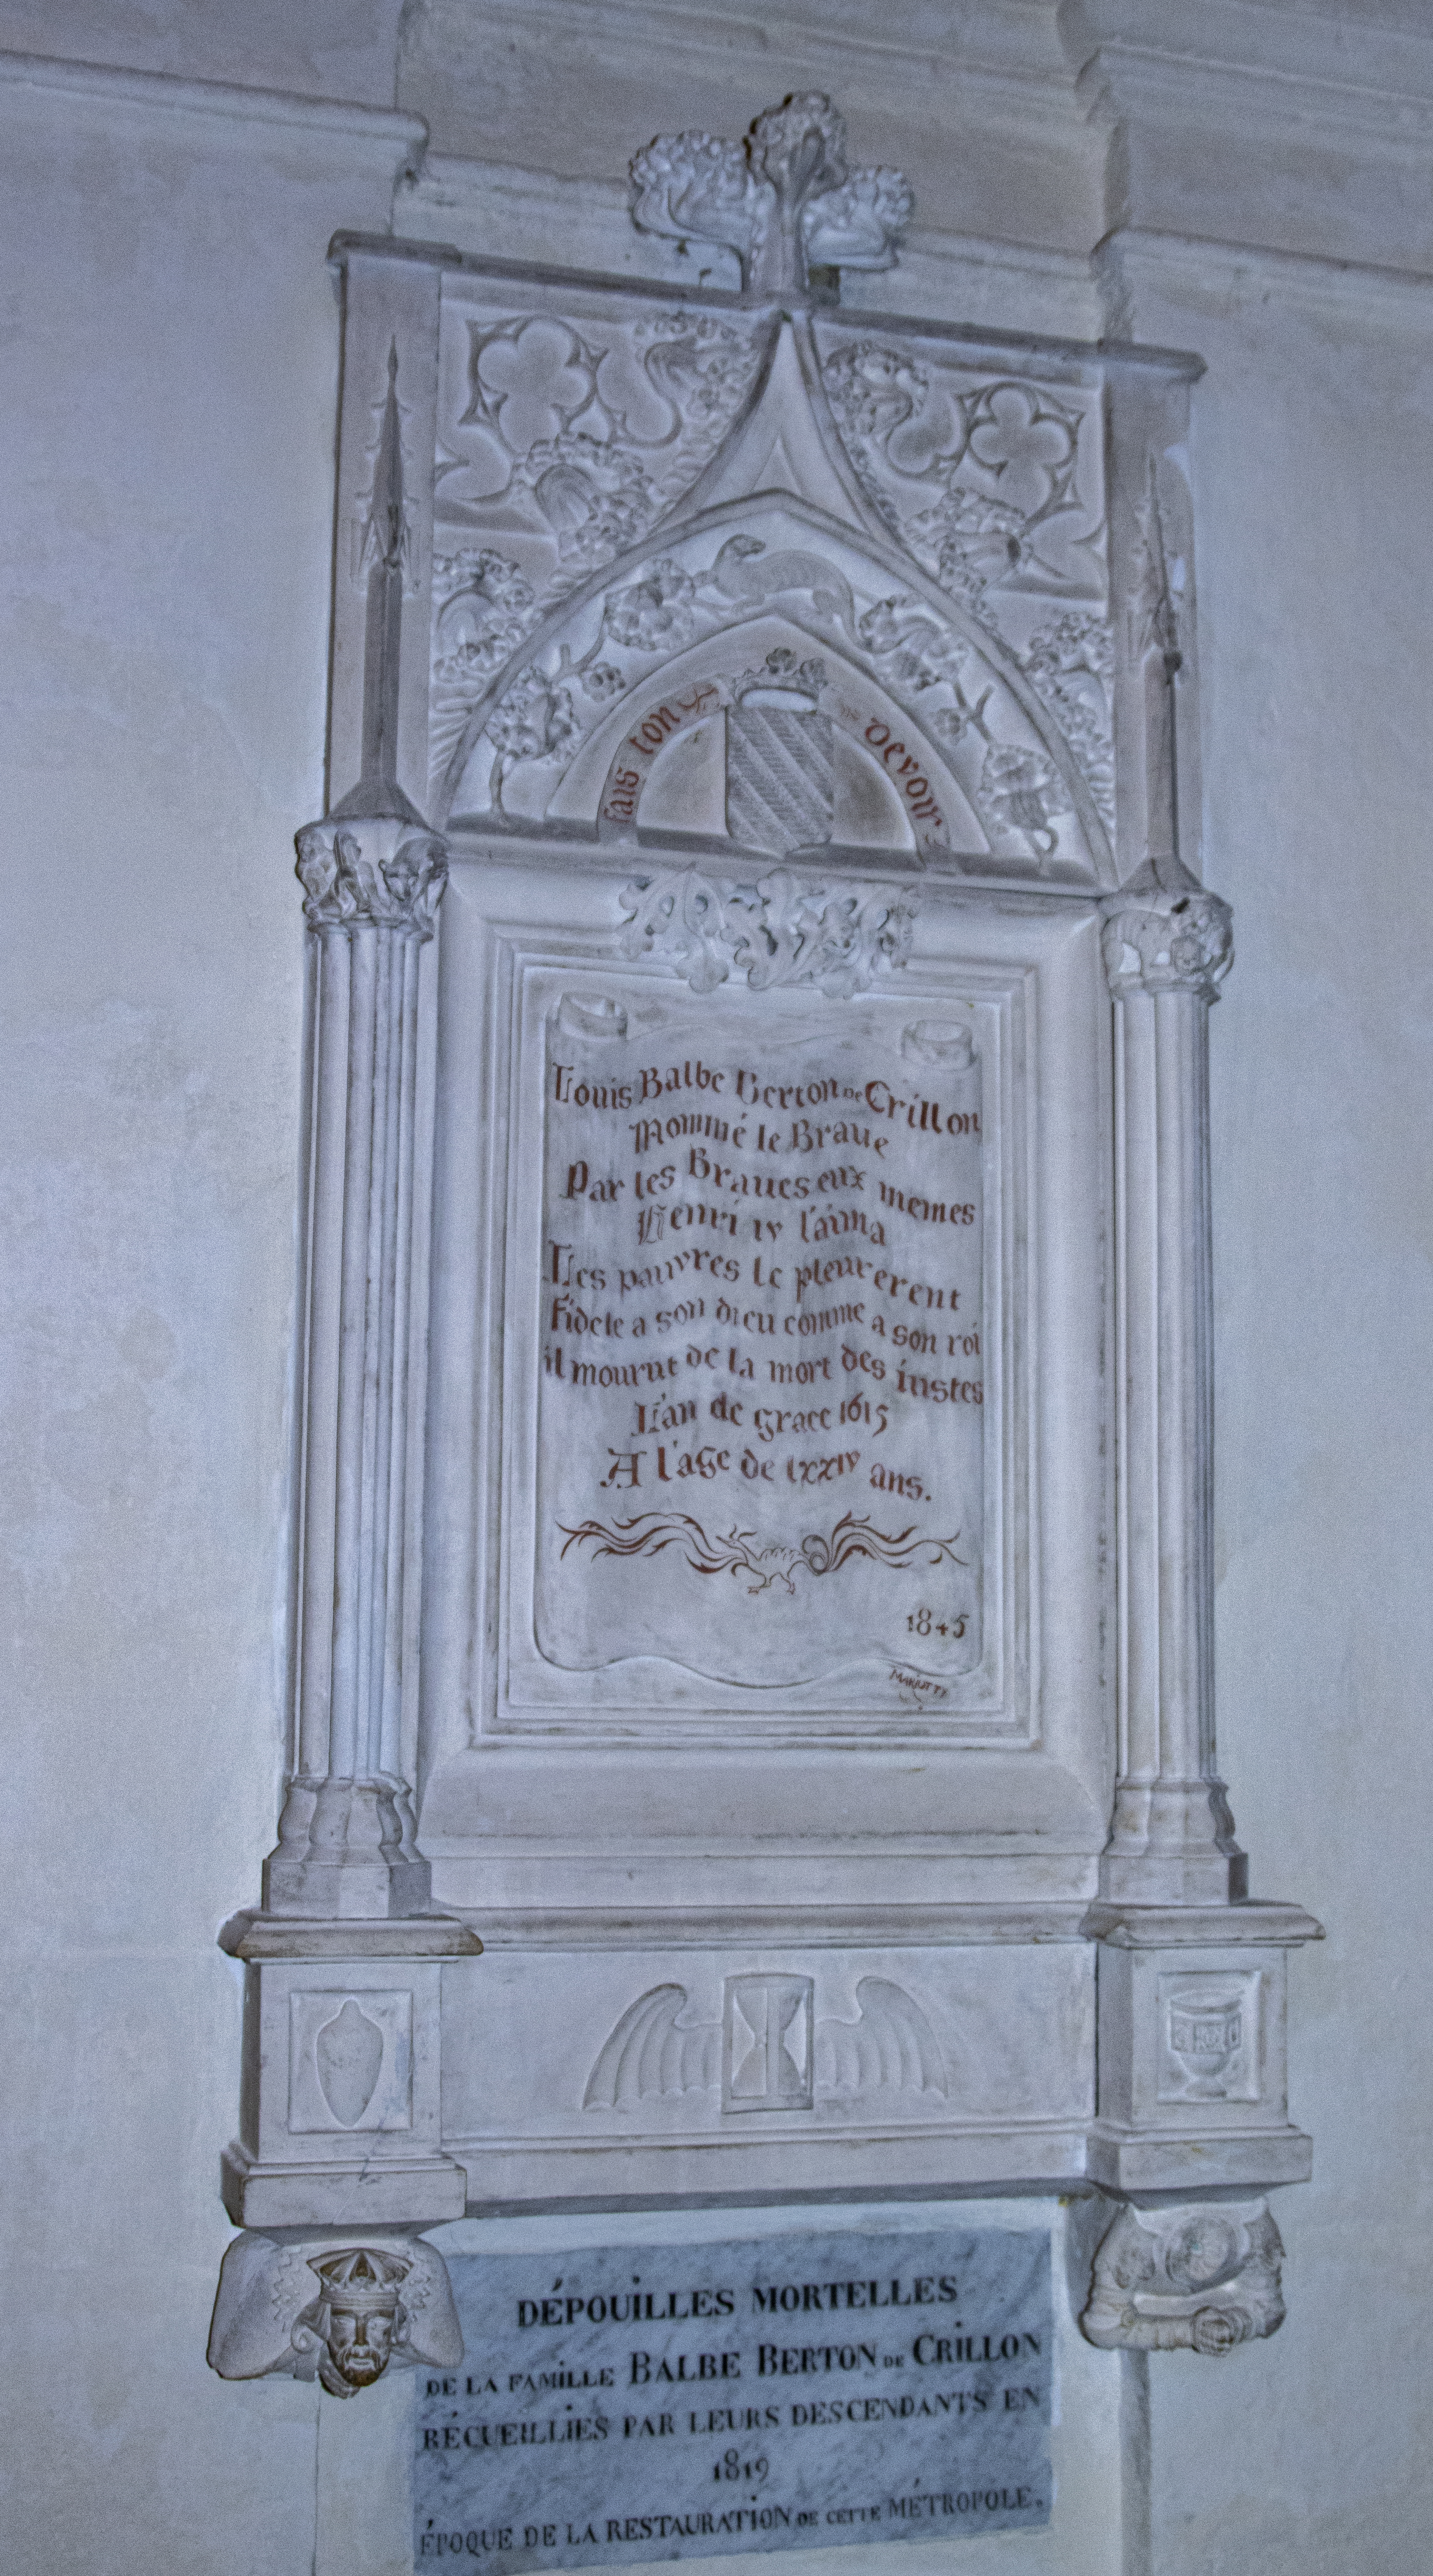 fais ton devoir
Louis Balbe Berton DE Crillon
Nommé le Braue
Par les Braues eux memes
Henri IV l'aima
Les pauvres le pleurerent
Fidele a son dieu comme a son roi
il mourut de la mort des iustes
L'an de grace 1615
A l'age de lxxiv ans.
1845
MARIOTTY
DÉPOUILLES MORTELLES
DE LA FAMILLE BALBE BERTON DE CRILLON
RÉCUEILLIES PAR LEURS DESCENDANTS EN
1819
ÉPOQUE DE LA RESTAURATION DE CETTE MÉTROPOLE.